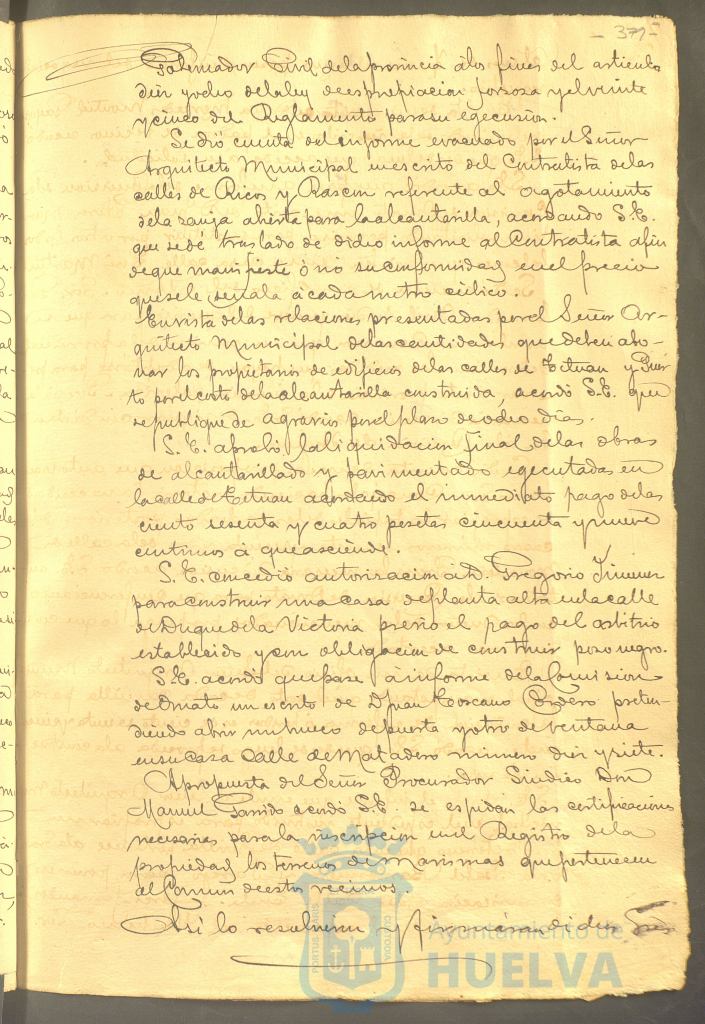 - 371 -
Gobernador Civil de la provincia á los fines del articulo
diez y ocho de la ley de espropiacion forzosa y el veinte
y cinco del Reglamento para su egecusion.
Se dió cuenta del informe evacuado por el Señor
Arquitecto Municipal en escrito del Contratista de las
calles de Ricos y Rascon referente al agotamiento
de la zanja abierta para la alcantarilla, acordando S.E.
que se dé traslado de dicho informe al Contratista a fin
de que manifieste ó nó su conformidad en el precio
que se le señala á cada metro cúbico.
En vista de las relaciones presentadas por el Señor Ar-
quitecto Municipal de las cantidades que deben abo-
nar los propietarios de edificios de las calles de Tetuan y Puer-
to por el costo de la alcantarilla construida, acordó S.E. que
se publique de agravios por el plazo de ocho días.
S.E. aprobó la liquidacion final de las obras
de alcantarillado y pavimentado egecutadas en
la calle de Tetuan acordando el inmediato pago de las
ciento sesenta y cuatro pesetas cincuenta y nueve
centimos á que asciende.
S.E. concedió autorizacion á D. Gregorio Jimenez
para construir una casa de planta alta en la calle
de Duque de la Victoria previo el pago del arbitrio
establecido y con obligacion de construir pozo negro.
S.E. acordó que pase á informe de la Comision
de Ornato un escrito de D. Juan Toscano Cordero preten-
diendo abrir un hueco de puerta y otro de ventana
en su casa calle de Matadero número diez y siete.
A propuesta del Señor Procurador Sindico Don
Manuel Garrido acordó S.E. se espidan las certificaciones
necesarias para la inscripcion en el Registro de la
propiedad los terrenos de marismas que pertenecen
al Comun de estos vecinos.
Así lo resolvieron y firmarán dichos Sres
PORTUS MARIS
CUSTODIA
Ayuntamiento de
HUELVA